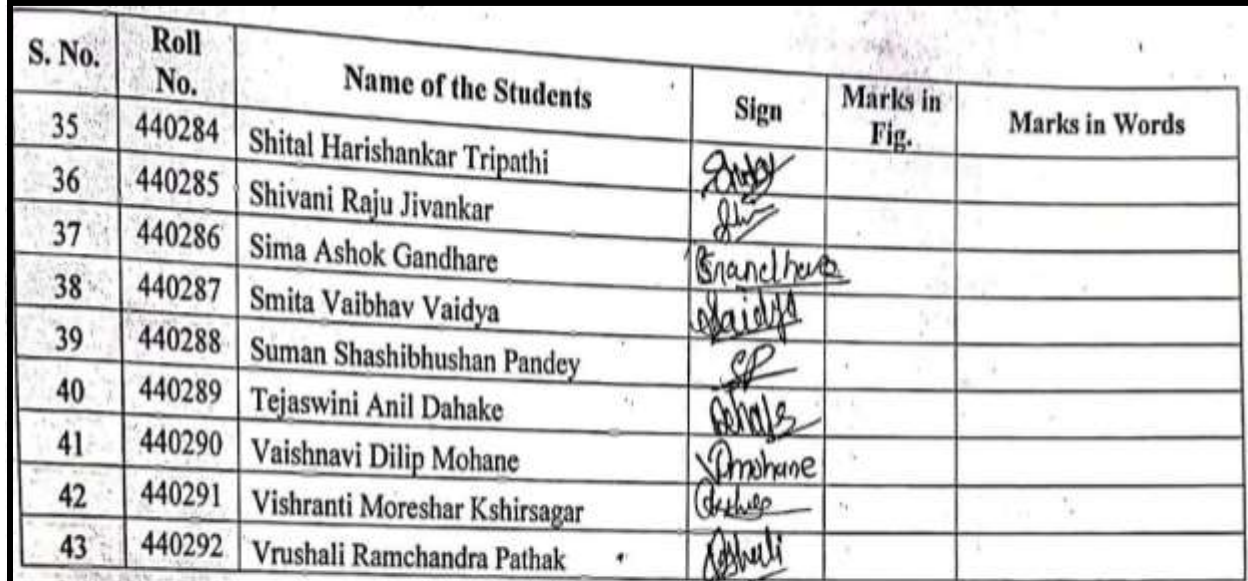 S. No. Roll No. Name of the Students Sign Marks in Fig. Marks in Words
35 440284 Shital Harishankar Tripathi
36 440285 Shivani Raju Jivankar
37 440286 Sima Ashok Gandhare
38 440287 Smita Vaibhav Vaidya Vaidya
39 440288 Suman Shashibhushan Pandey SP
40 440289 Tejaswini Anil Dahake
41 440290 Vaishnavi Dilip Mohane VDmohane
42 440291 Vishranti Moreshar Kshirsagar
43 440292 Vrushali Ramchandra Pathak